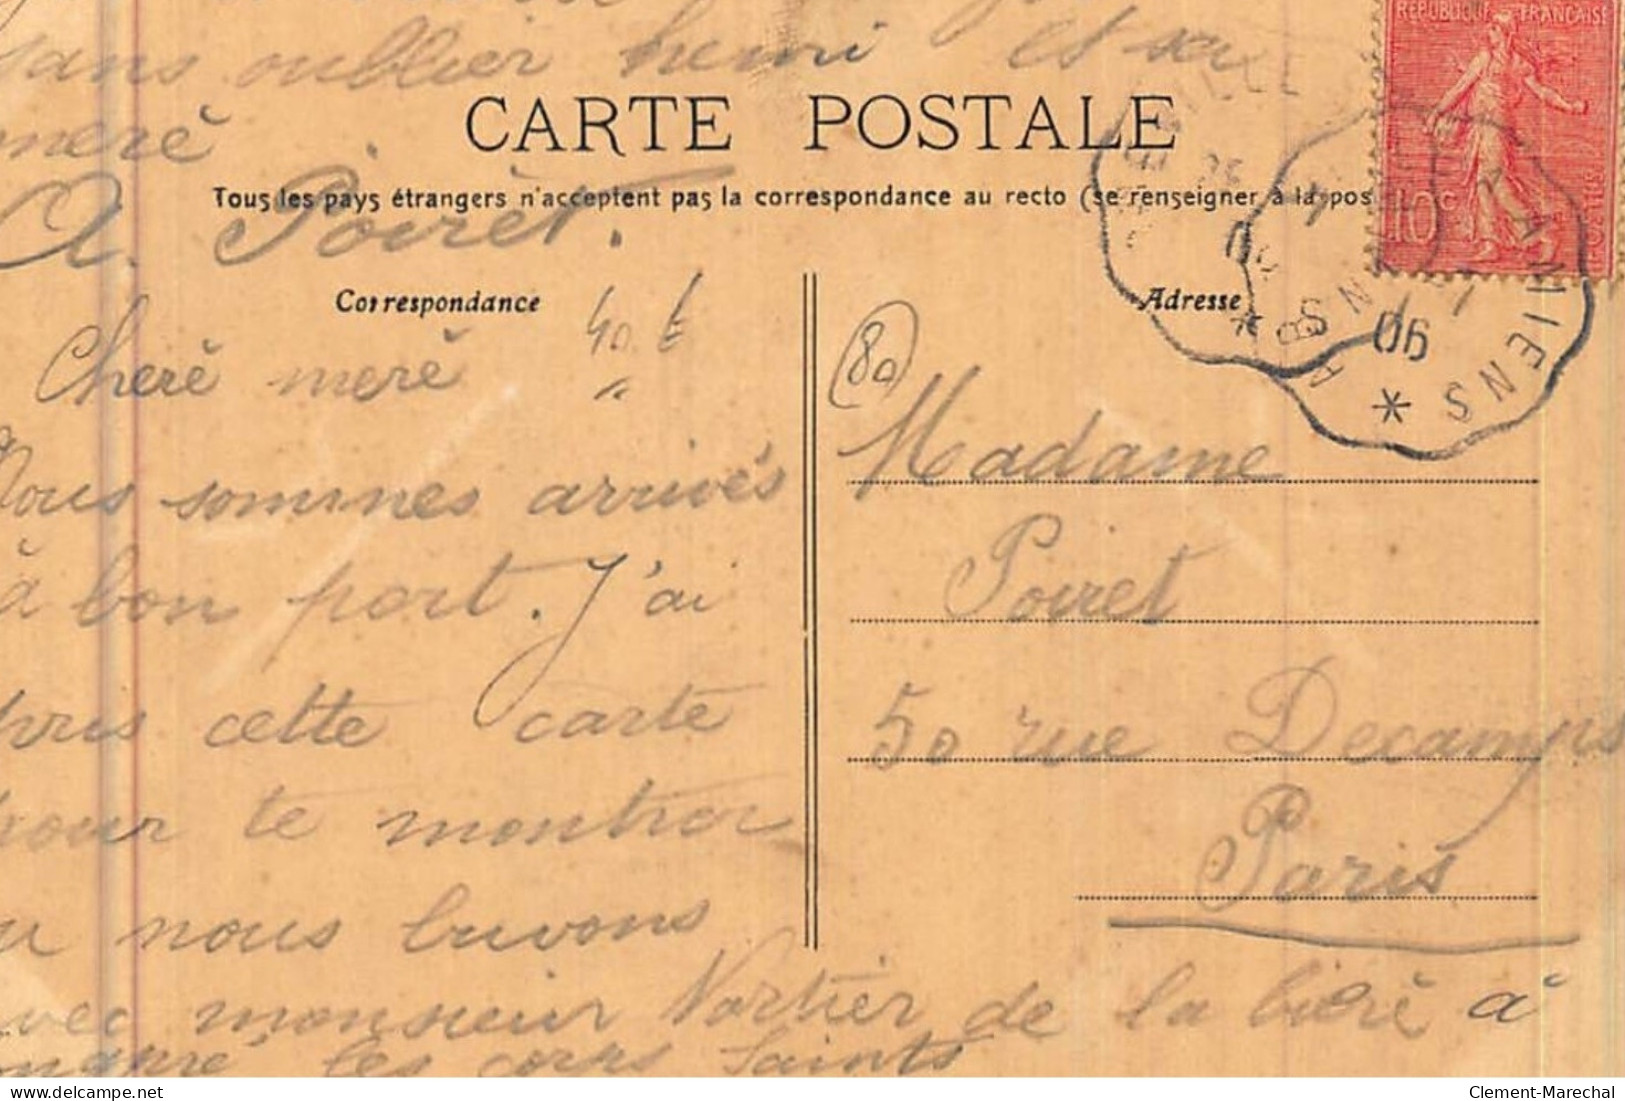 sans oublier henri et sa
meré
A. Poiret.
CARTE POSTALE
Tous les pays étrangers n'acceptent pas la correspondance au recto (se renseigner à la pos
REPUBLIQUE FRANÇAISE
10c
AMIENS
06
Correspondance
40 f
Cheré meré
Nous sommes arrivés
à bon port. J'ai
pris cette carte
pour te montrer
nous buvons
avec monsieur Vortier de la bieré à
les corps Saints
Adresse
80
Madame
Poiret
50 rue Decamps
Paris
Clement-Marechal
delcampe.net